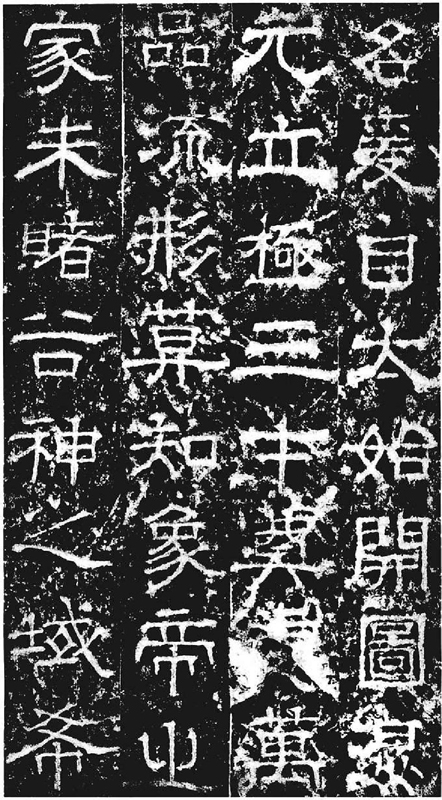 名爰自太始開圖
元立極三才奠萬
品流形莫知象帝之
家未睹谷神之域希